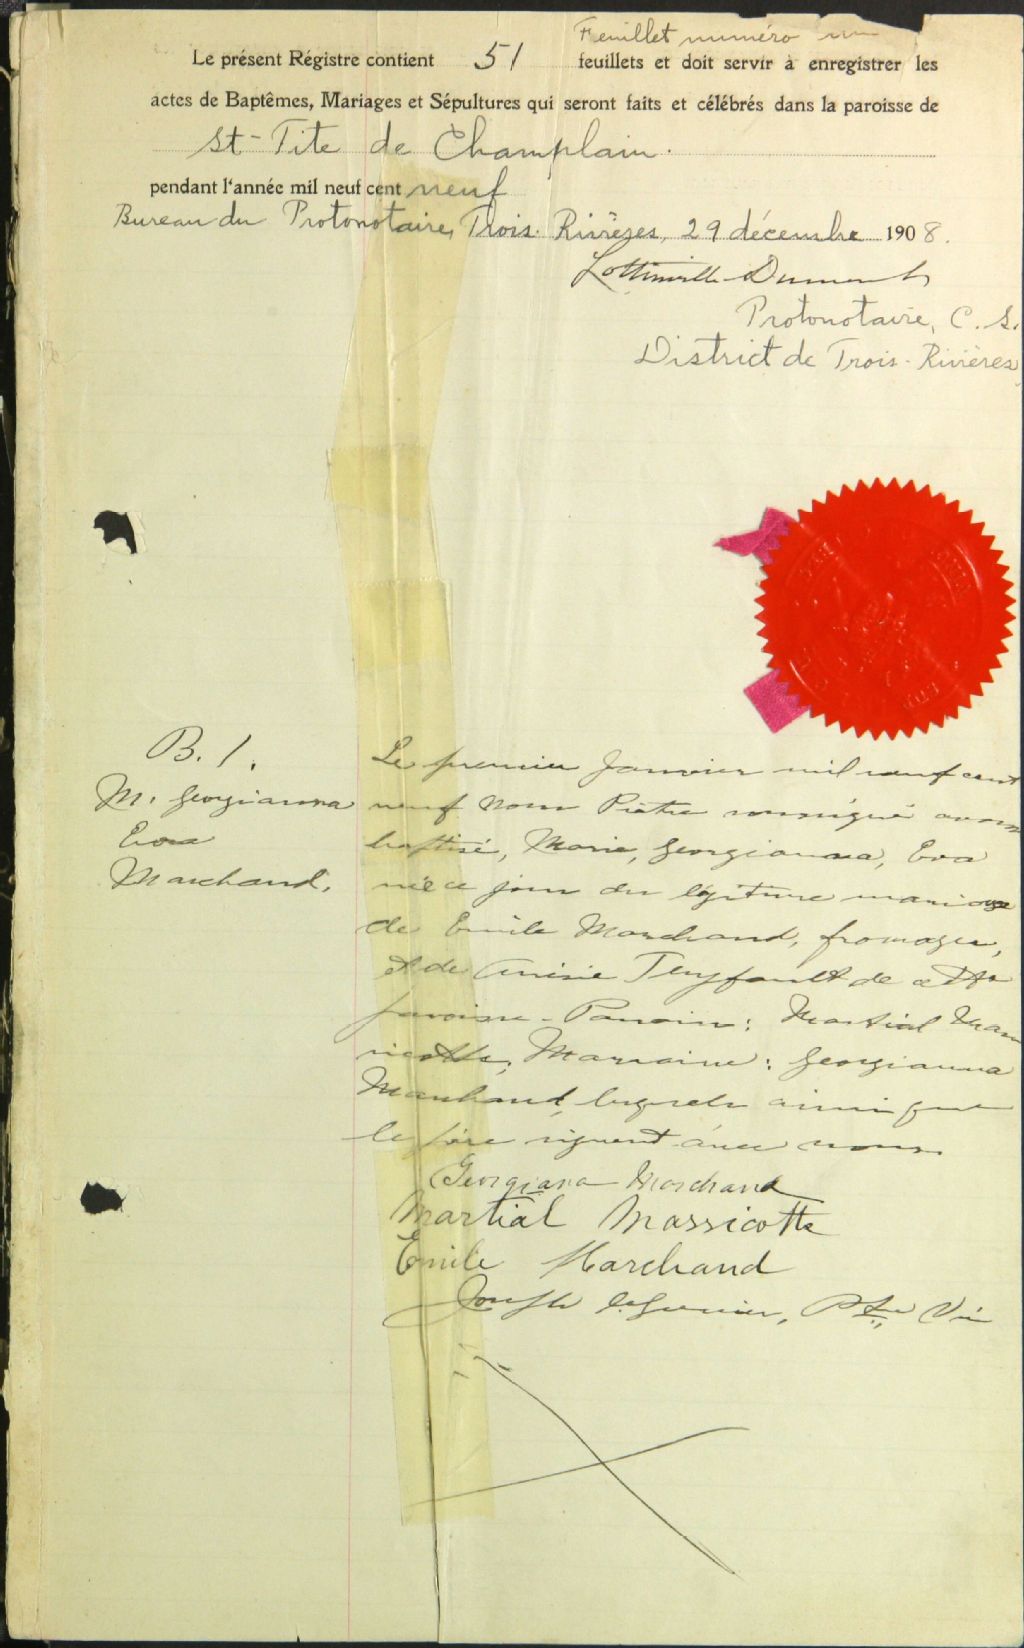 Feuillet numéro un
Le présent Régistre contient 51 feuillets et doit servir à enregistrer les
actes de Baptêmes, Mariages et Sépultures qui seront faits et célébrés dans la paroisse de
St-Tite de Champlain.
pendant l'année mil neuf cent neuf
Bureau du Protonotaire, Trois-Rivières, 29 décembre 1908.
Dumont
Protonotaire, C. S.
District de Trois-Rivières
B. 1.
M. Georgianna
Eva
Marchand.
Le premier Janvier mil neuf cent
neuf nous Prêtre soussigné avons
baptisé, Marie, Georgianna, Eva
née ce jour du légitime mariage
de Emile Marchand, fromager,
et de de cette
paroisse - Parrain: Martial Mas
sicotte, Marraine: Georgianna
Marchand, lesquels ainsi que
le père signent avec nous
Georgiana Marchand
Martial Massicotte
Emile Marchand
Joseph Ptre Vic